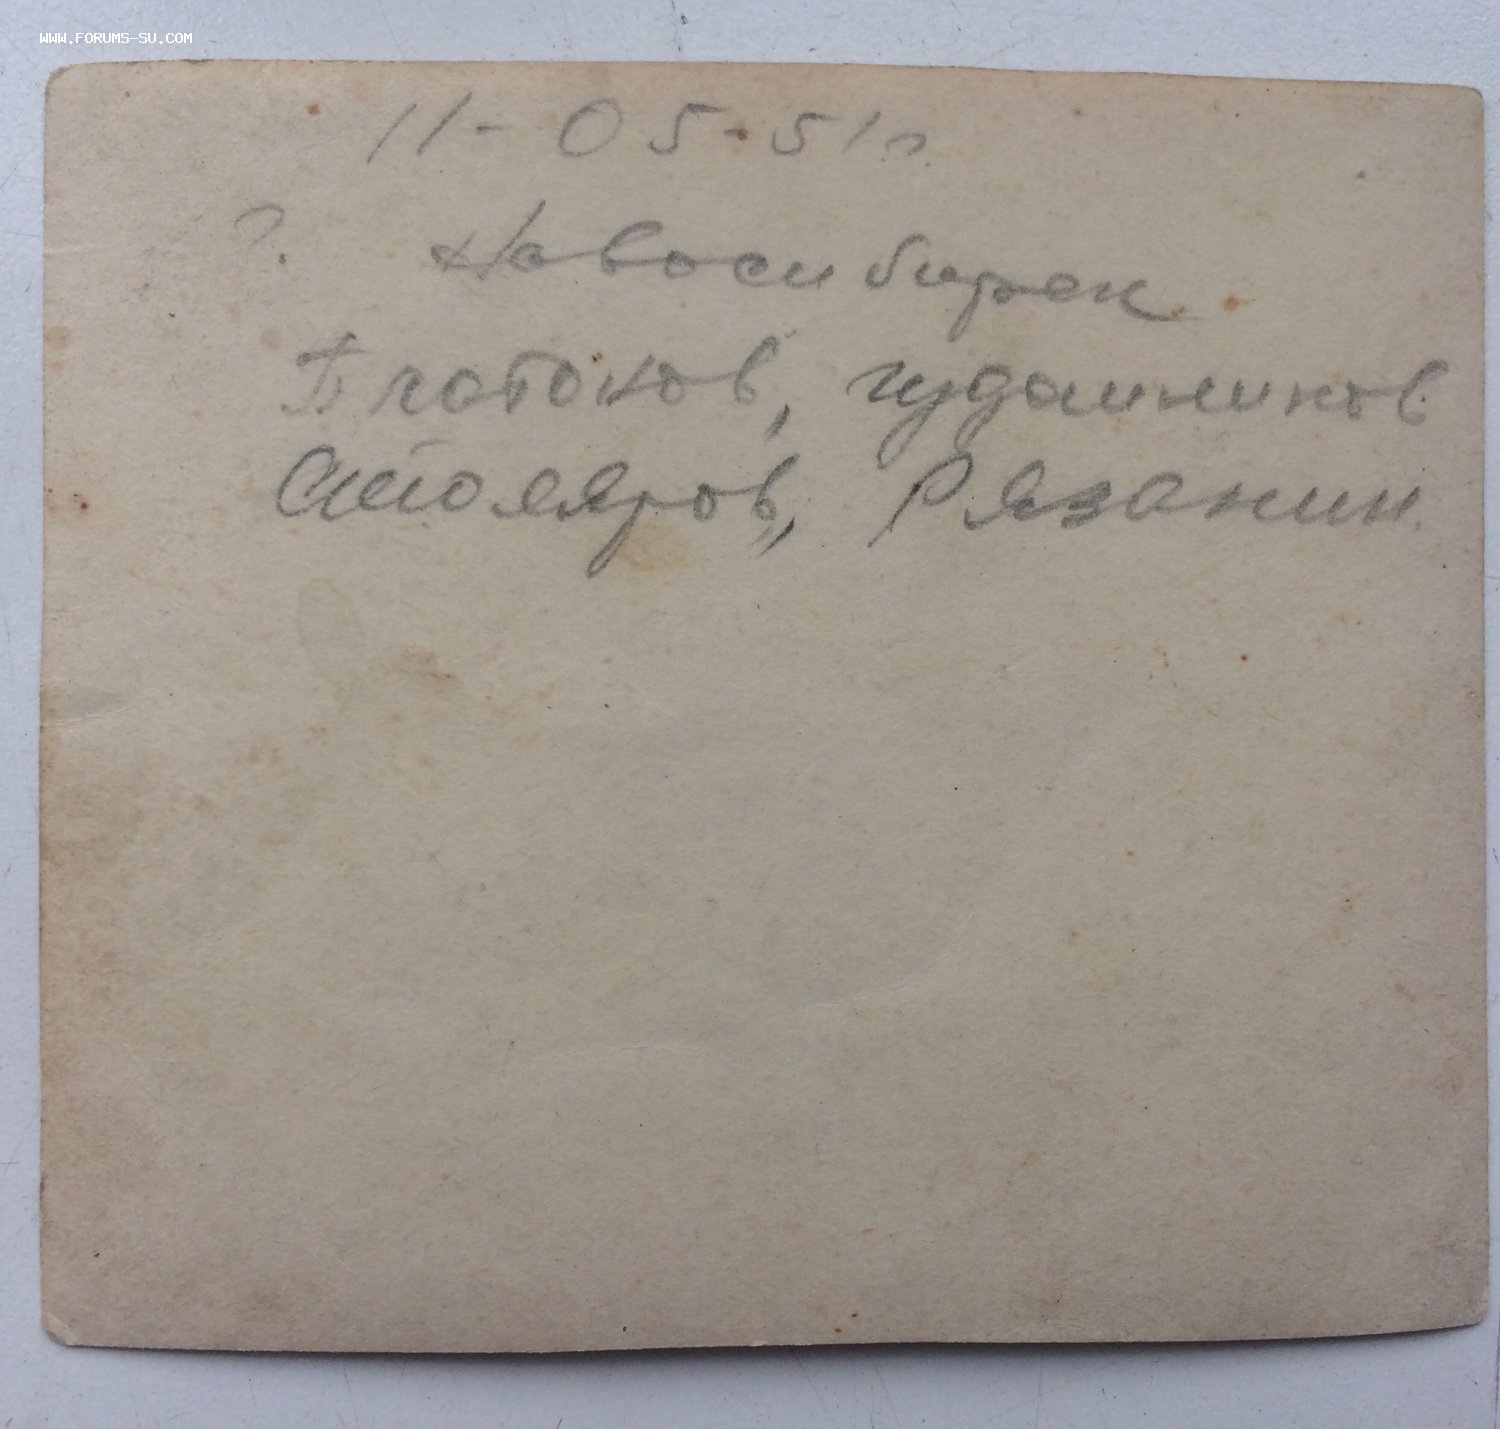 WWW.FORUMS-SU.COM
11-05-51г.
г. Новосибирск
Платонов,
Столяров, Рязанин.